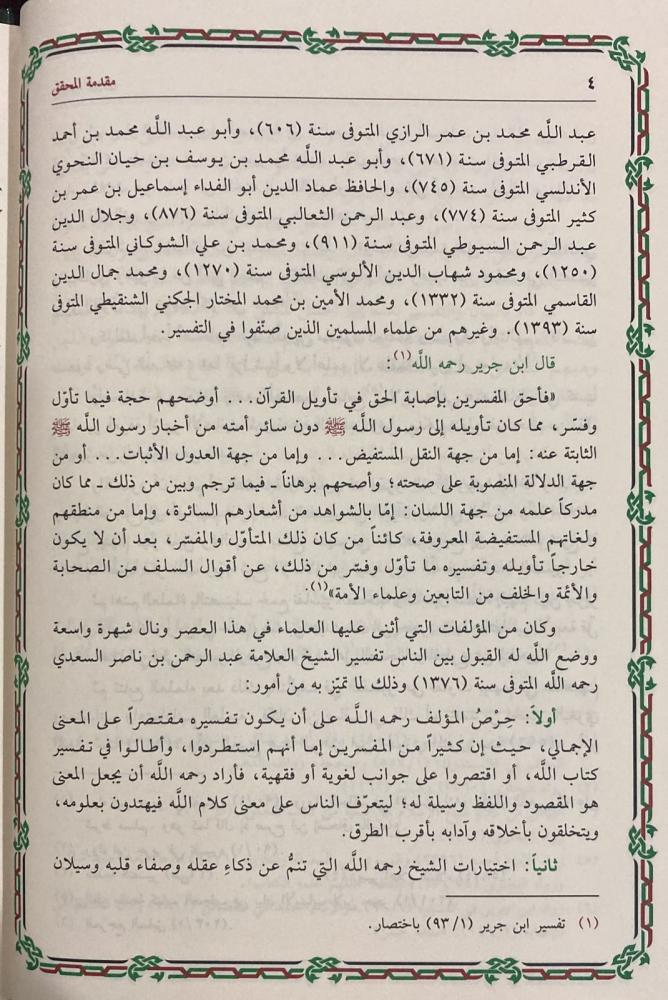 ٤
مقدمة المحقق
عبد اللَّه محمد بن عمر الرازي المتوفى سنة (٦٠٦)، وأبو عبد اللَّه محمد بن أحمد
القرطبي المتوفى سنة (٦٧١)، وأبو عبد اللَّه محمد بن يوسف بن حيان النحوي
الأندلسي المتوفى سنة (٧٤٥)، والحافظ عماد الدين أبو الفداء إسماعيل بن عمر بن
كثير المتوفى سنة (٧٧٤)، وعبد الرحمن الثعالبي المتوفى سنة (٨٧٦)، وجلال الدين
عبد الرحمن السيوطي المتوفى سنة (٩١١)، ومحمد بن علي الشوكاني المتوفى سنة
(١٢٥٠)، ومحمود شهاب الدين الألوسي المتوفى سنة (١٢٧٠)، ومحمد جمال الدين
القاسمي المتوفى سنة (١٣٣٢)، ومحمد الأمين بن محمد المختار الجكني الشنقيطي المتوفى
سنة (١٣٩٣). وغيرهم من علماء المسلمين الذين صنّفوا في التفسير.
قال ابن جرير رحمه اللَّه(١):
«فأحق المفسرين بإصابة الحق في تأويل القرآن... أوضحهم حجة فيما تأوّل
وفسّر، مما كان تأويله إلى رسول اللَّه ﷺ دون سائر أمته من أخبار رسول اللَّه ﷺ
الثابتة عنه: إما من جهة النقل المستفيض... وإما من جهة العدول الأثبات... أو من
جهة الدلالة المنصوبة على صحته؛ وأصحهم برهاناً ـ فيما ترجم وبين من ذلك ـ مما كان
مدركاً علمه من جهة اللسان: إمّا بالشواهد من أشعارهم السائرة، وإما من منطقهم
ولغاتهم المستفيضة المعروفة، كائناً من كان ذلك المتأوّل والمفسّر، بعد أن لا يكون
خارجاً تأويله وتفسيره ما تأوّل وفسّر من ذلك، عن أقوال السلف من الصحابة
والأئمّة والخلف من التابعين وعلماء الأمة»(١).
وكان من المؤلفات التي أثنى عليها العلماء في هذا العصر ونال شهرة واسعة
ووضع اللَّه له القبول بين الناس تفسير الشيخ العلامة عبد الرحمن بن ناصر السعدي
رحمه اللَّه المتوفى سنة (١٣٧٦) وذلك لما تميّز به من أمور:
أولاً: حِرْصُ المؤلف رحمه اللَّه على أن يكون تفسيره مقتصراً على المعنى
الإجمالي، حيث إن كثيراً من المفسرين إما أنهم استطردوا، وأطالوا في تفسير
كتاب اللَّه، أو اقتصروا على جوانب لغوية أو فقهية، فأراد رحمه اللَّه أن يجعل المعنى
هو المقصود واللفظ وسيلة له؛ ليتعرّف الناس على معنى كلام اللَّه فيهتدون بعلومه،
ويتخلقون بأخلاقه وآدابه بأقرب الطرق.
ثانياً: اختيارات الشيخ رحمه اللَّه التي تنمُّ عن ذكاءِ عقله وصفاء قلبه وسيلان
(١) تفسير ابن جرير (٩٣/١) باختصار.